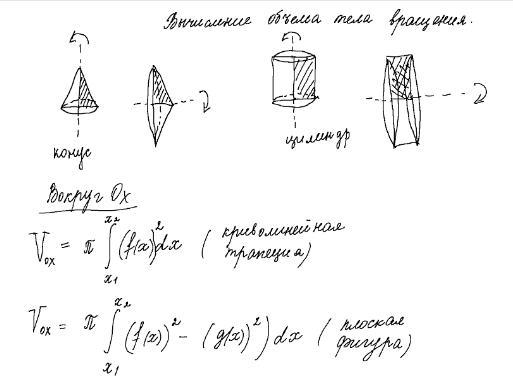 Вычисление объема тела вращения.
конус
цилиндр
Вокруг Ox
V_ox = π ∫_{x1}^{x2} (f(x))^2 dx (криволинейная трапеция)
V_ox = π ∫_{x1}^{x2} (f(x))^2 - (g(x))^2) dx (плоская фигура)